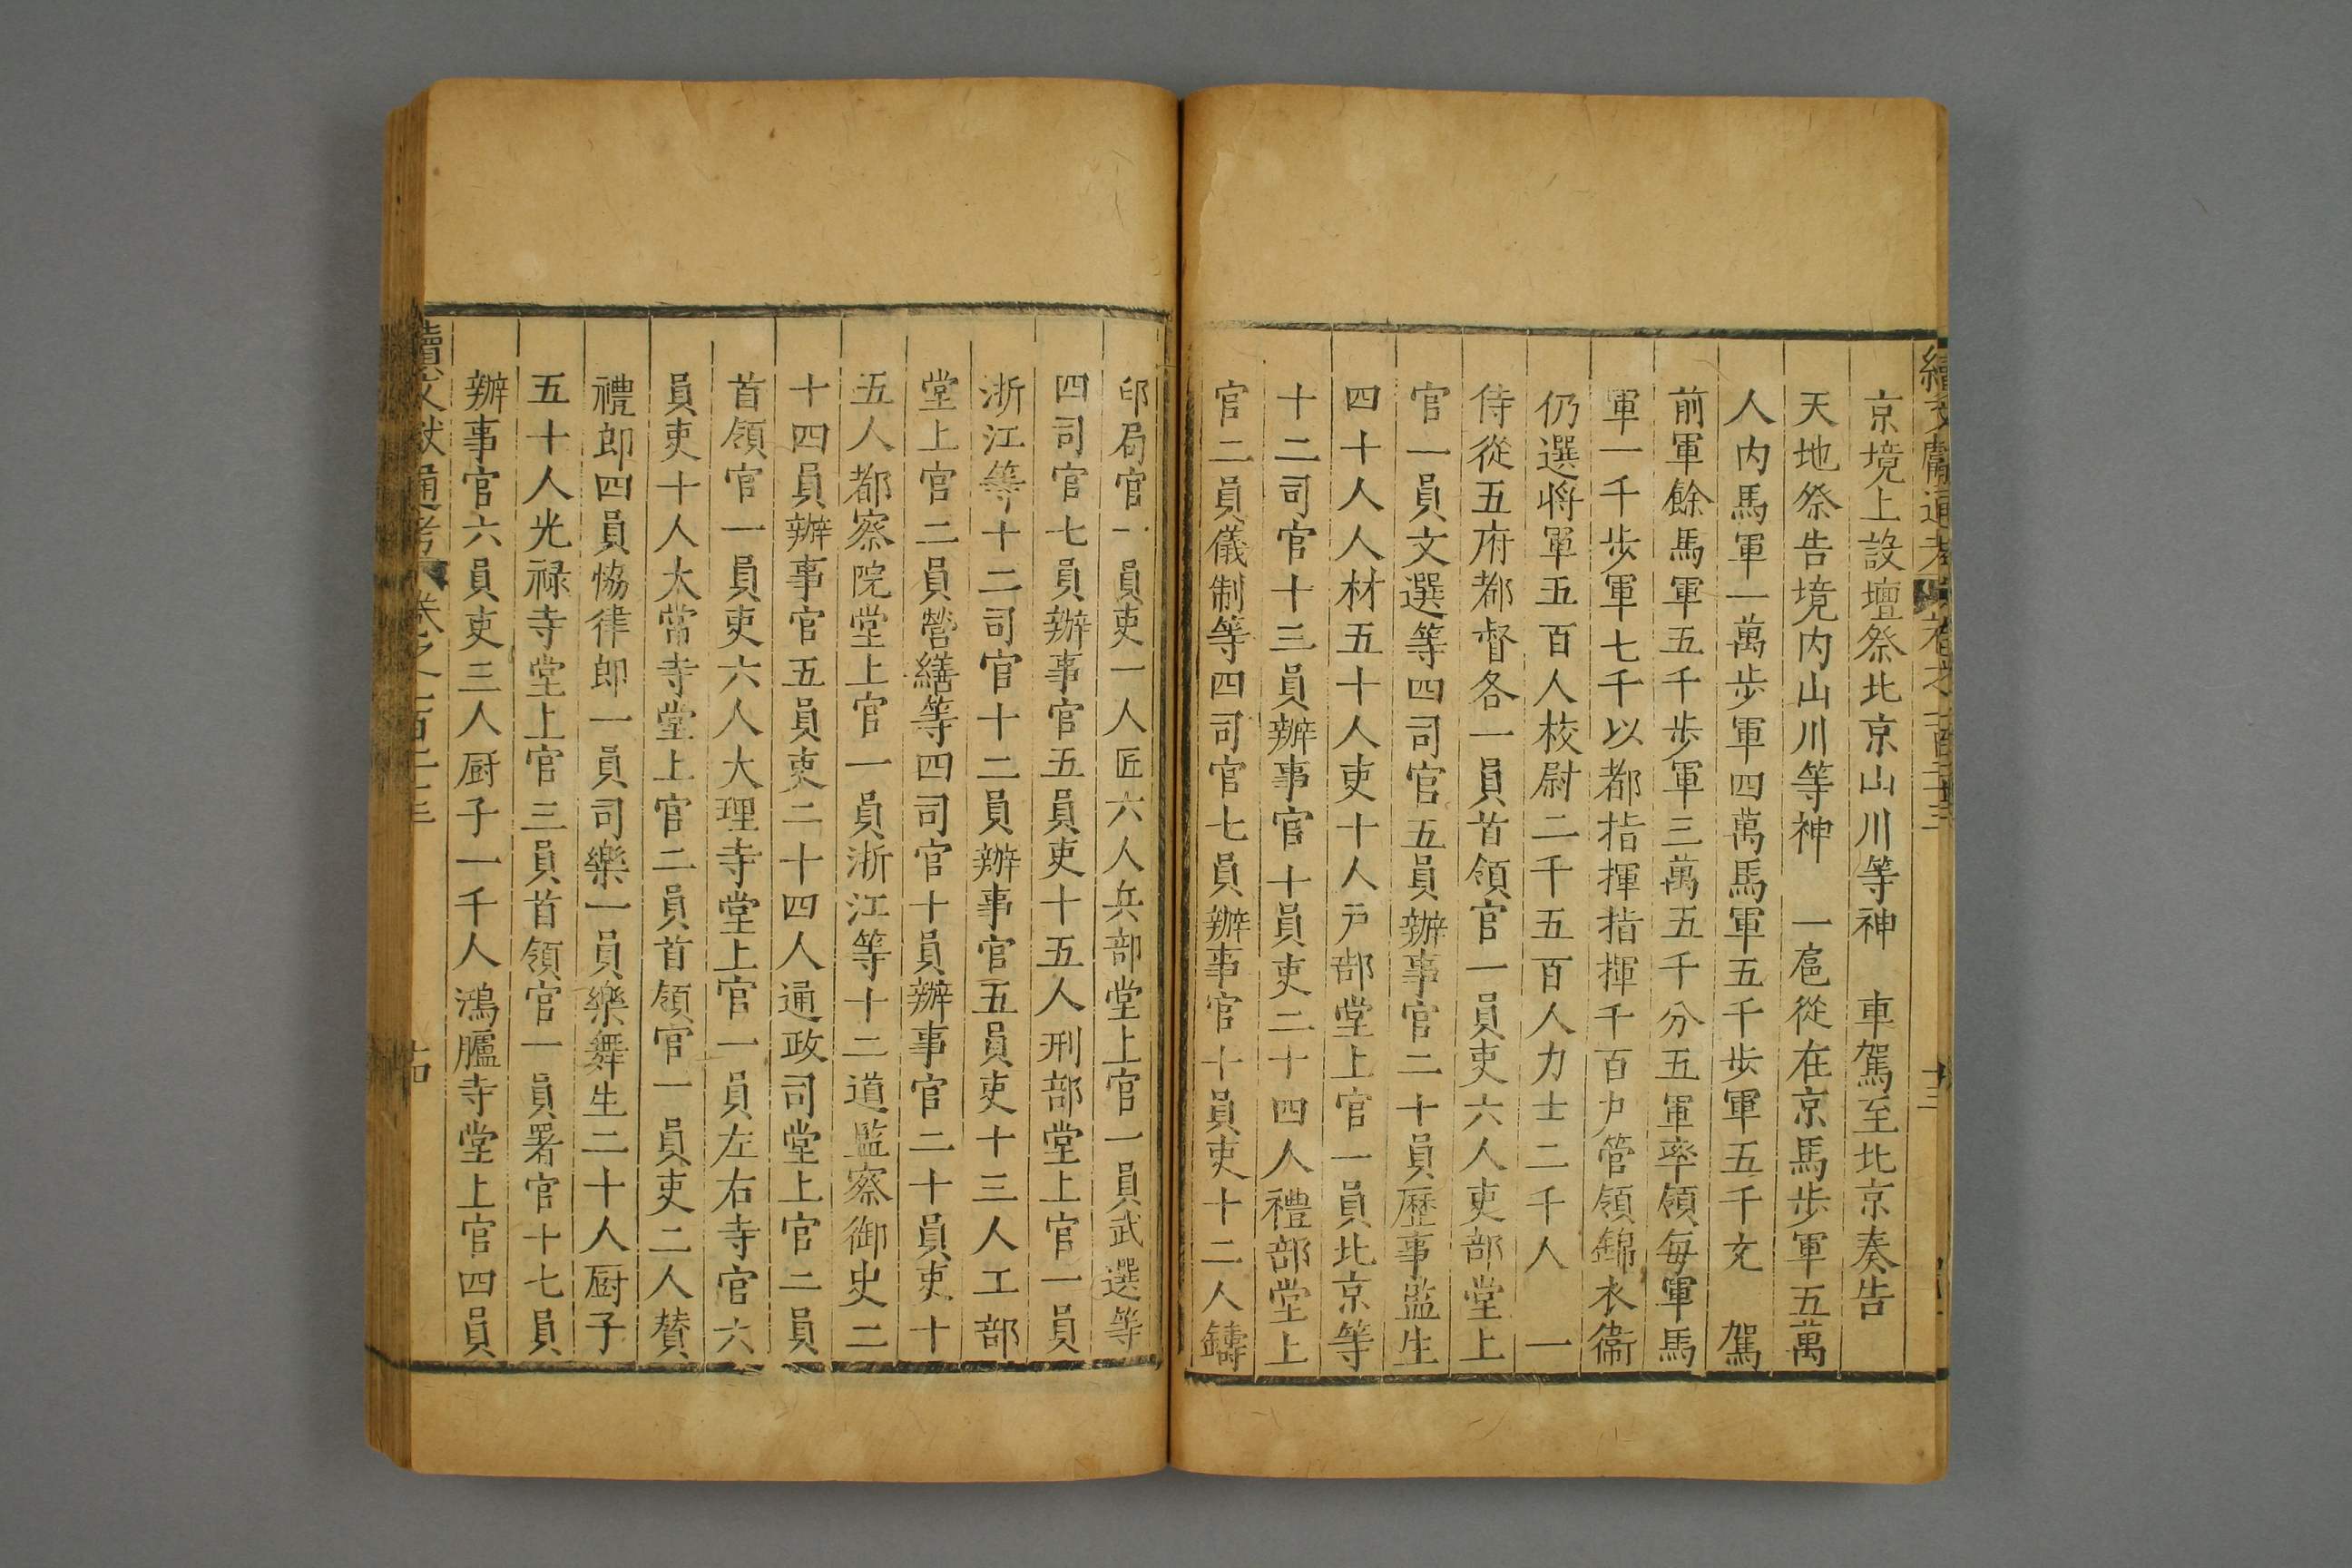 京境上設壇祭北京山川等神　車駕至北京奏告
天地祭告境内山川等神　一扈從在京馬步軍五萬
人内馬軍一萬步軍四萬馬軍五千步軍五千充　駕
前軍餘馬軍五千步軍三萬五千分五軍率領每軍馬
軍一千步軍七千以都指揮指揮千百户管領錦衣衞
仍選將軍五百人校尉二千五百人力士二千人　一
侍從五府都督各一員首領官一員吏六人吏部堂上
官一員文選等四司官五員辦事官二十員歷事監生
四十人人材五十人吏十人户部堂上官一員北京等
十二司官十三員辦事官十員吏二十四人禮部堂上
官二員儀制等四司官七員辦事官十員吏十二人鑄
印局官一員吏一人匠六人兵部堂上官一員武選等
四司官七員辦事官五員吏十五人刑部堂上官一員
浙江等十二司官十二員辦事官五員吏十三人工部
堂上官二員營繕等四司官十員辦事官二十員吏十
五人都察院堂上官一員浙江等十二道監察御史二
十四員辦事官五員吏二十四人通政司堂上官二員
首領官一員吏六人大理寺堂上官一員左右寺官六
員吏十人太常寺堂上官二員首領官一員吏二人贊
禮郎四員恊律郎一員司樂一員樂舞生二十人厨子
五十人光禄寺堂上官三員首領官一員署官十七員
辦事官六員吏三人厨子一千人鴻臚寺堂上官四員
續文獻通考　卷之一百二十三　十四